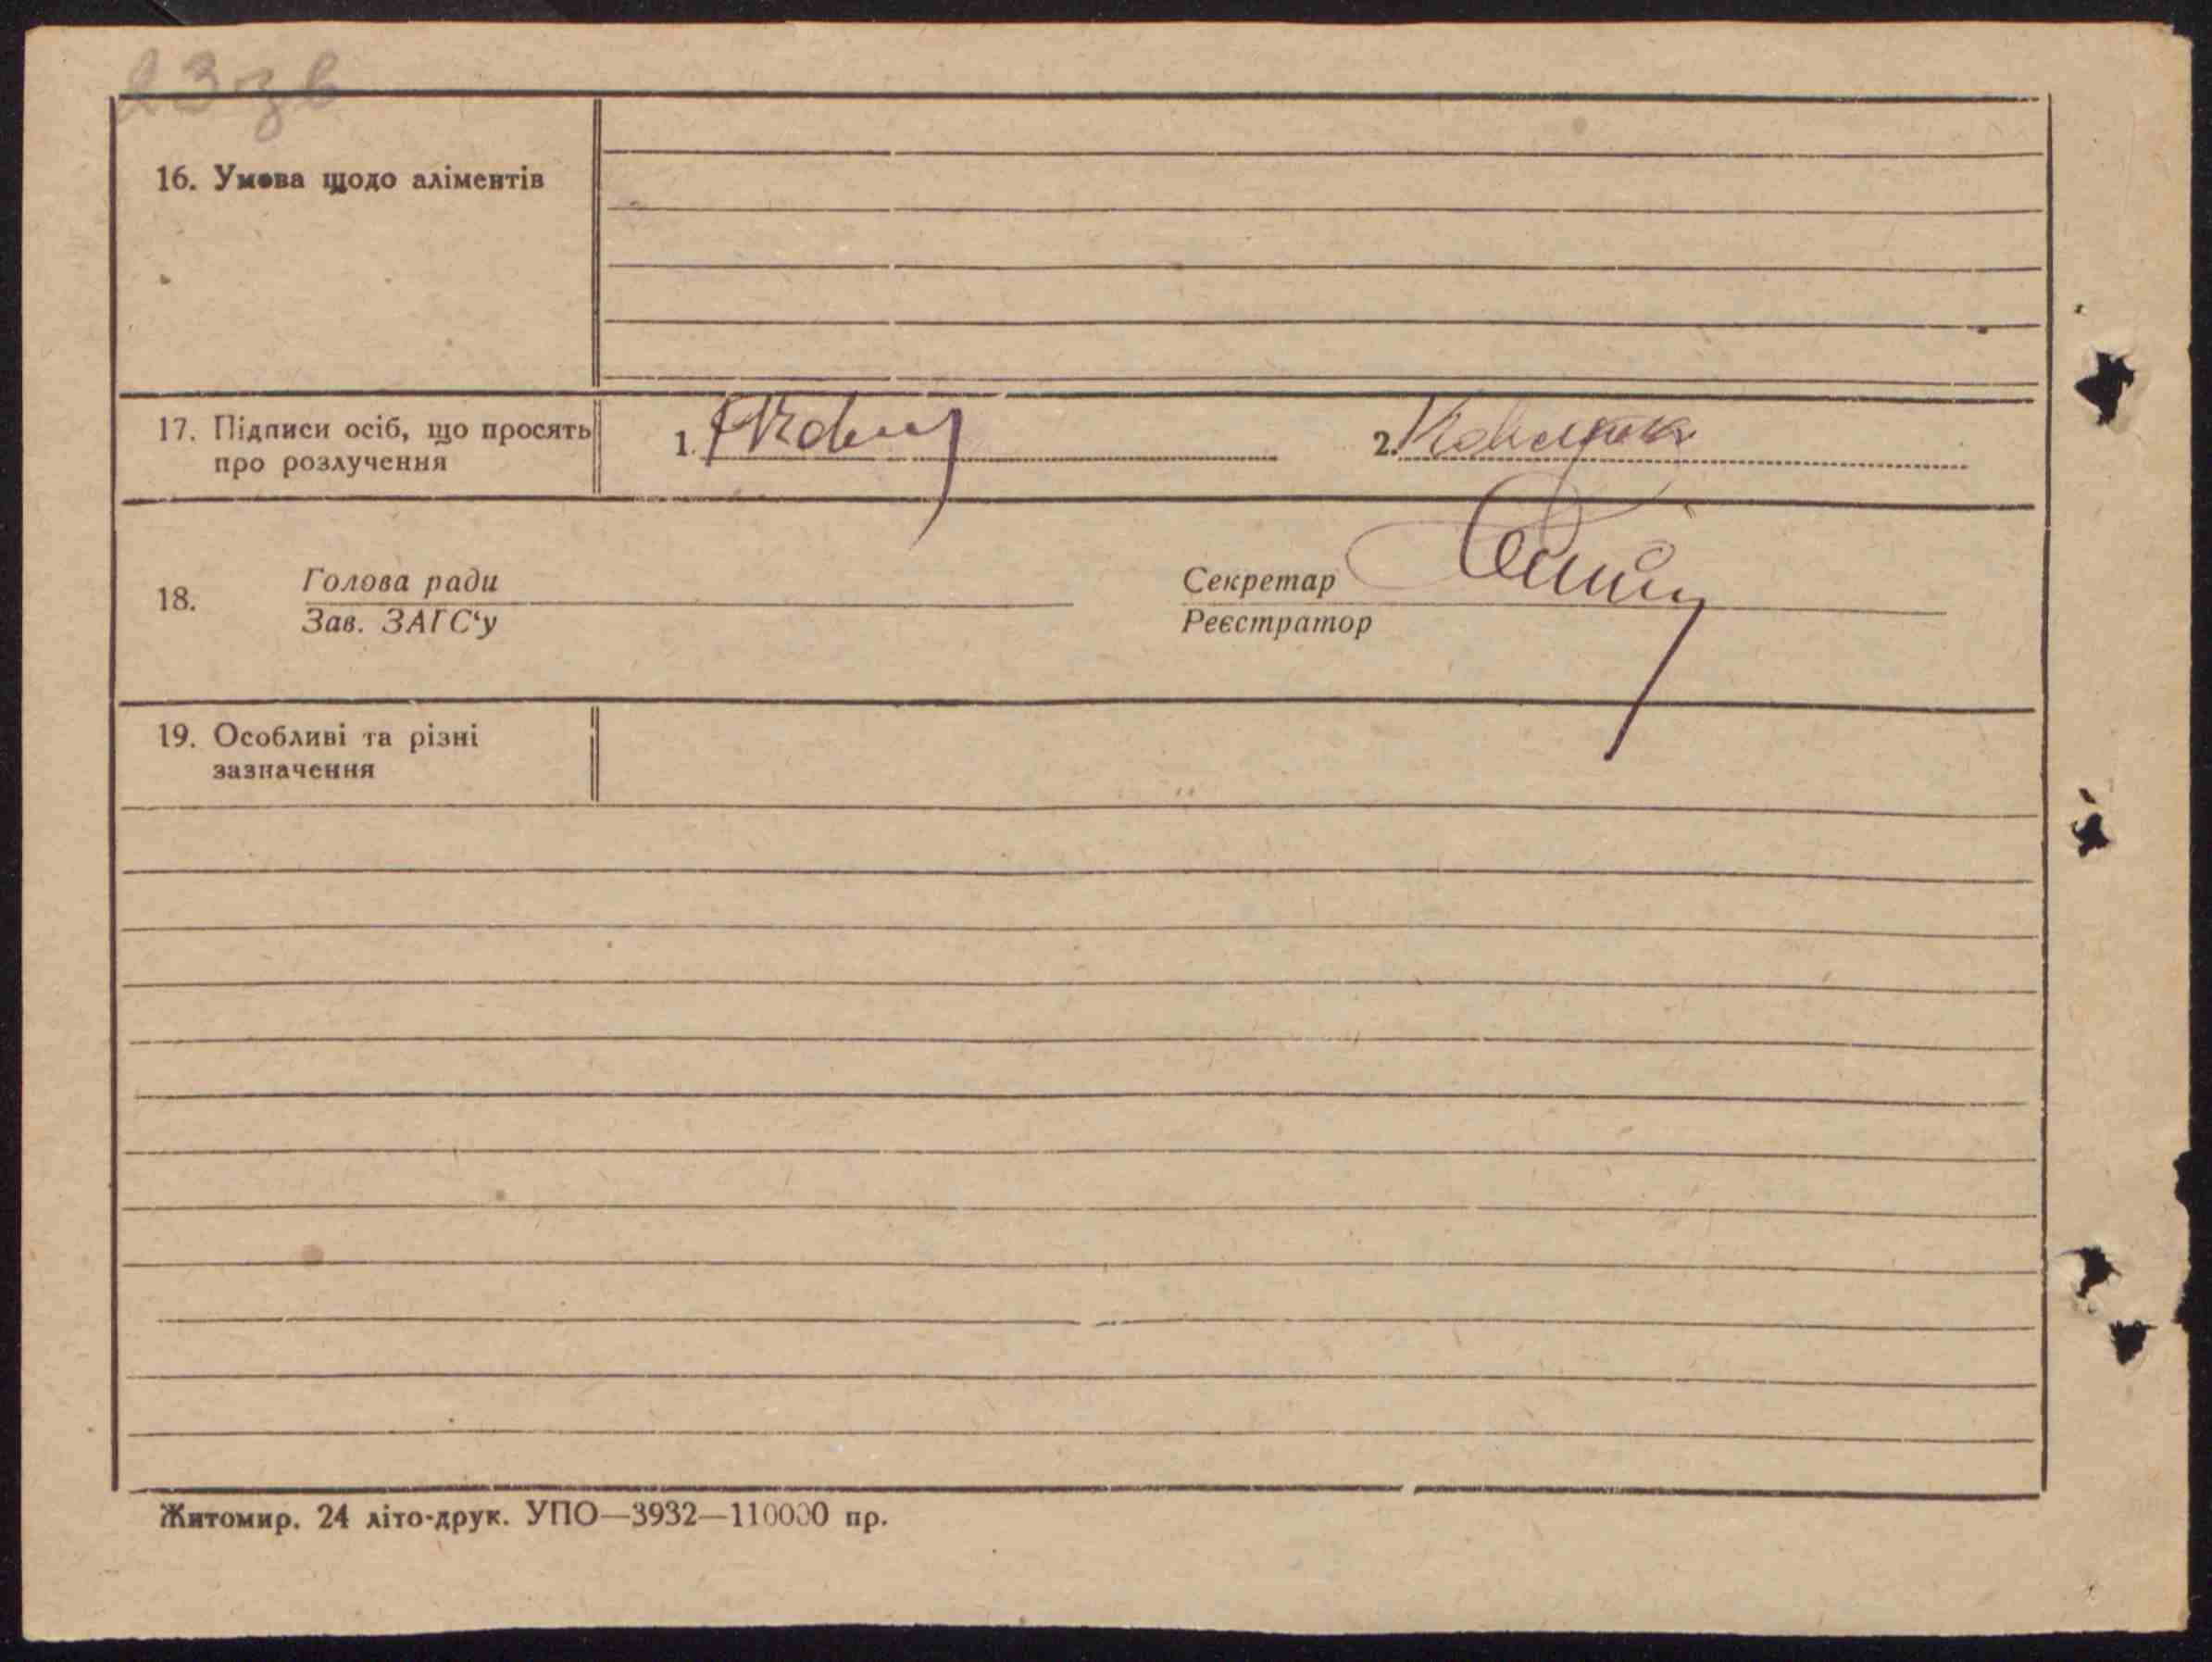 23 зв
16. Умова щодо аліментів
17. Підписи осіб, що просять
про розлучення
1.
2.
18.
Голова ради
Зав. ЗАГС‘у
Секретар
Реєстратор
19. Особливі та різні
зазначення
Житомир. 24 літо-друк. УПО—3932—110000 пр.